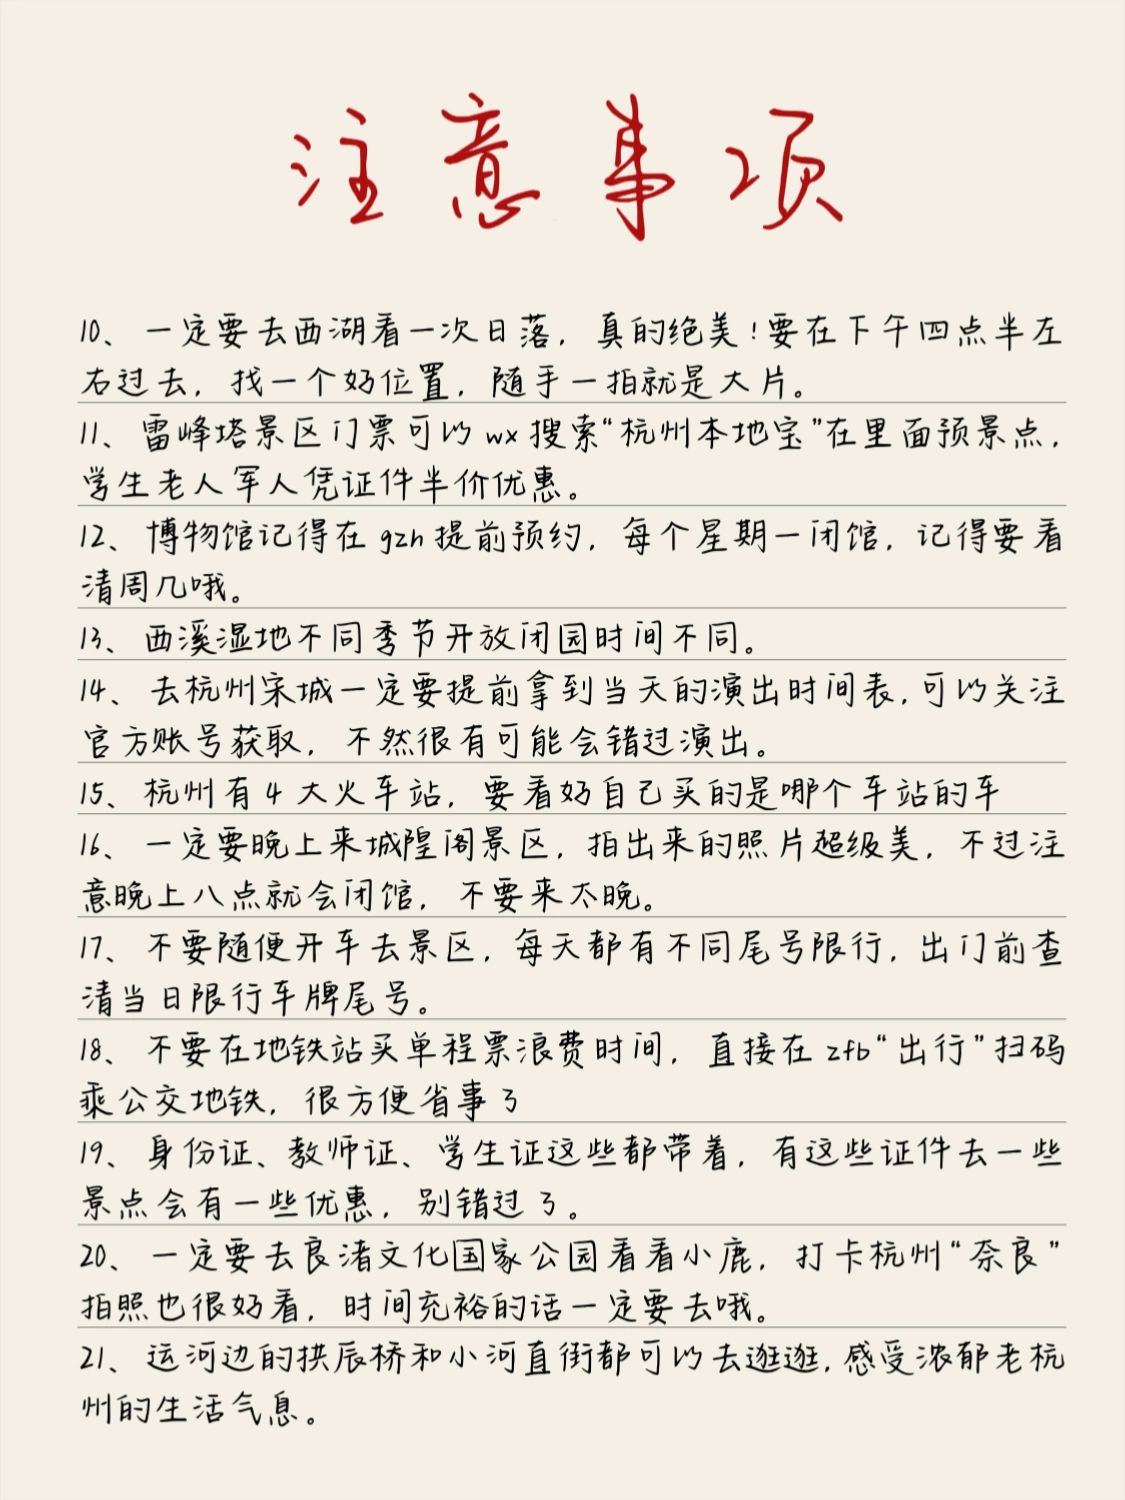 注意事项
10、一定要去西湖看一次日落，真的绝美！要在下午四点半左
右过去，找一个好位置，随手一拍就是大片。
11、雷峰塔景区门票可以wx搜索“杭州本地宝”在里面预景点，
学生老人军人凭证件半价优惠。
12、博物馆记得在gzh提前预约，每个星期一闭馆，记得要看
清周几哦。
13、西溪湿地不同季节开放闭园时间不同。
14、去杭州宋城一定要提前拿到当天的演出时间表，可以关注
官方账号获取，不然很有可能会错过演出。
15、杭州有4大火车站，要看好自己买的是哪个车站的车
16、一定要晚上来城隍阁景区，拍出来的照片超级美，不过注
意晚上八点就会闭馆，不要来太晚。
17、不要随便开车去景区，每天都有不同尾号限行，出门前查
清当日限行车牌尾号。
18、不要在地铁站买单程票浪费时间，直接在zfb“出行”扫码
乘公交地铁，很方便省事了
19、身份证、教师证、学生证这些都带着，有这些证件去一些
景点会有一些优惠，别错过了。
20、一定要去良渚文化国家公园看看小鹿，打卡杭州“奈良”
拍照也很好看，时间充裕的话一定要去哦。
21、运河边的拱辰桥和小河直街都可以去逛逛，感受浓郁老杭
州的生活气息。